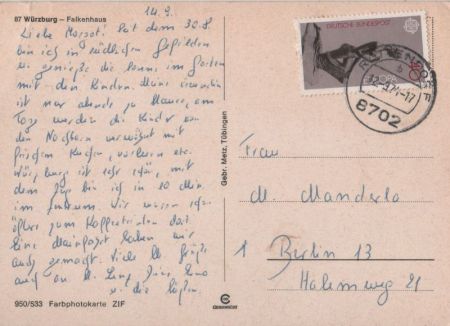 87 Würzburg – Falkenhaus
14.9.
Liebe Margot! Seit dem 30.8.
bin ich in südlichen Gefilden
u. genieße die Sonne im Garten
mit den Kindern. Meine
ist nur abends zu Hause, am
Tage werden die Kinder von
den Nachbarn verwöhnt mit
frischem Kuchen, etc.
Würzburg ist sehr schön, mit
dem Zug bin ich in 10 Min.
im Zentrum. Wir waren schon
öfter zum Kaffeetrinken dort.
Eine Mainfahrt haben wir
auch gemacht. Viele lb. Grüße
auch an
u. die
950/533 Farbphotokarte ZIF
Gebr. Metz, Tübingen
DEUTSCHE BUNDESPOST
40
8702
Frau
M. Manderla
1 Berlin 13
Halemweg 21